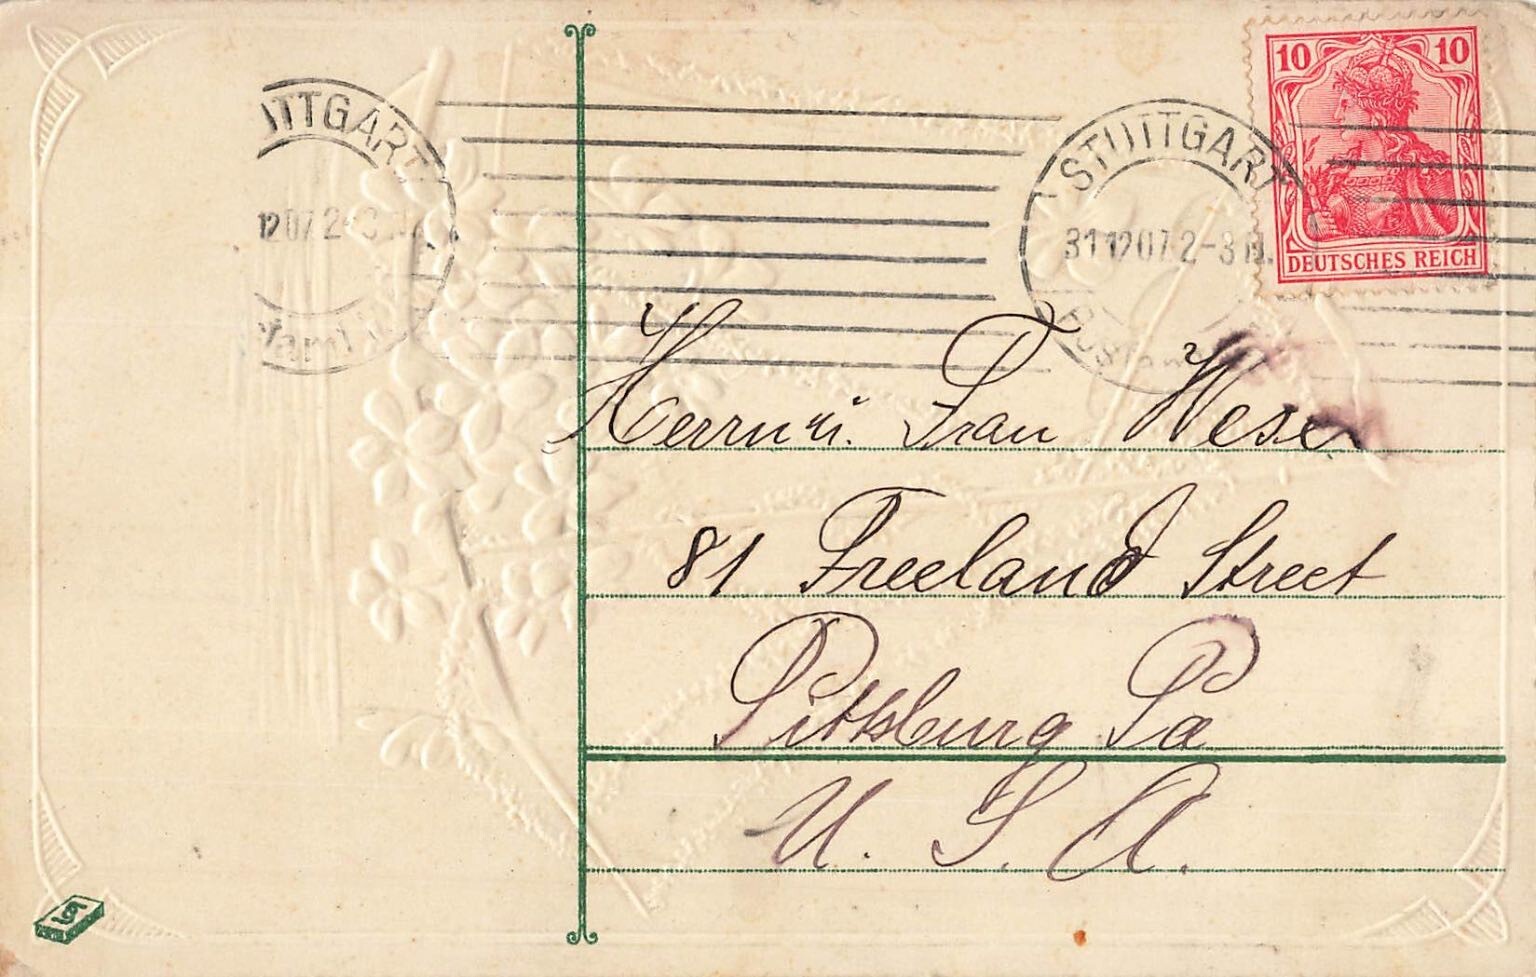 STUTTGART
31 12 07. 2-3 N.
10 10
DEUTSCHES REICH
TTGART
12 07. 2-3 N.
Herrn u. Frau Weser
81 Freeland Street
Pittsburg Pa
U. S. A.